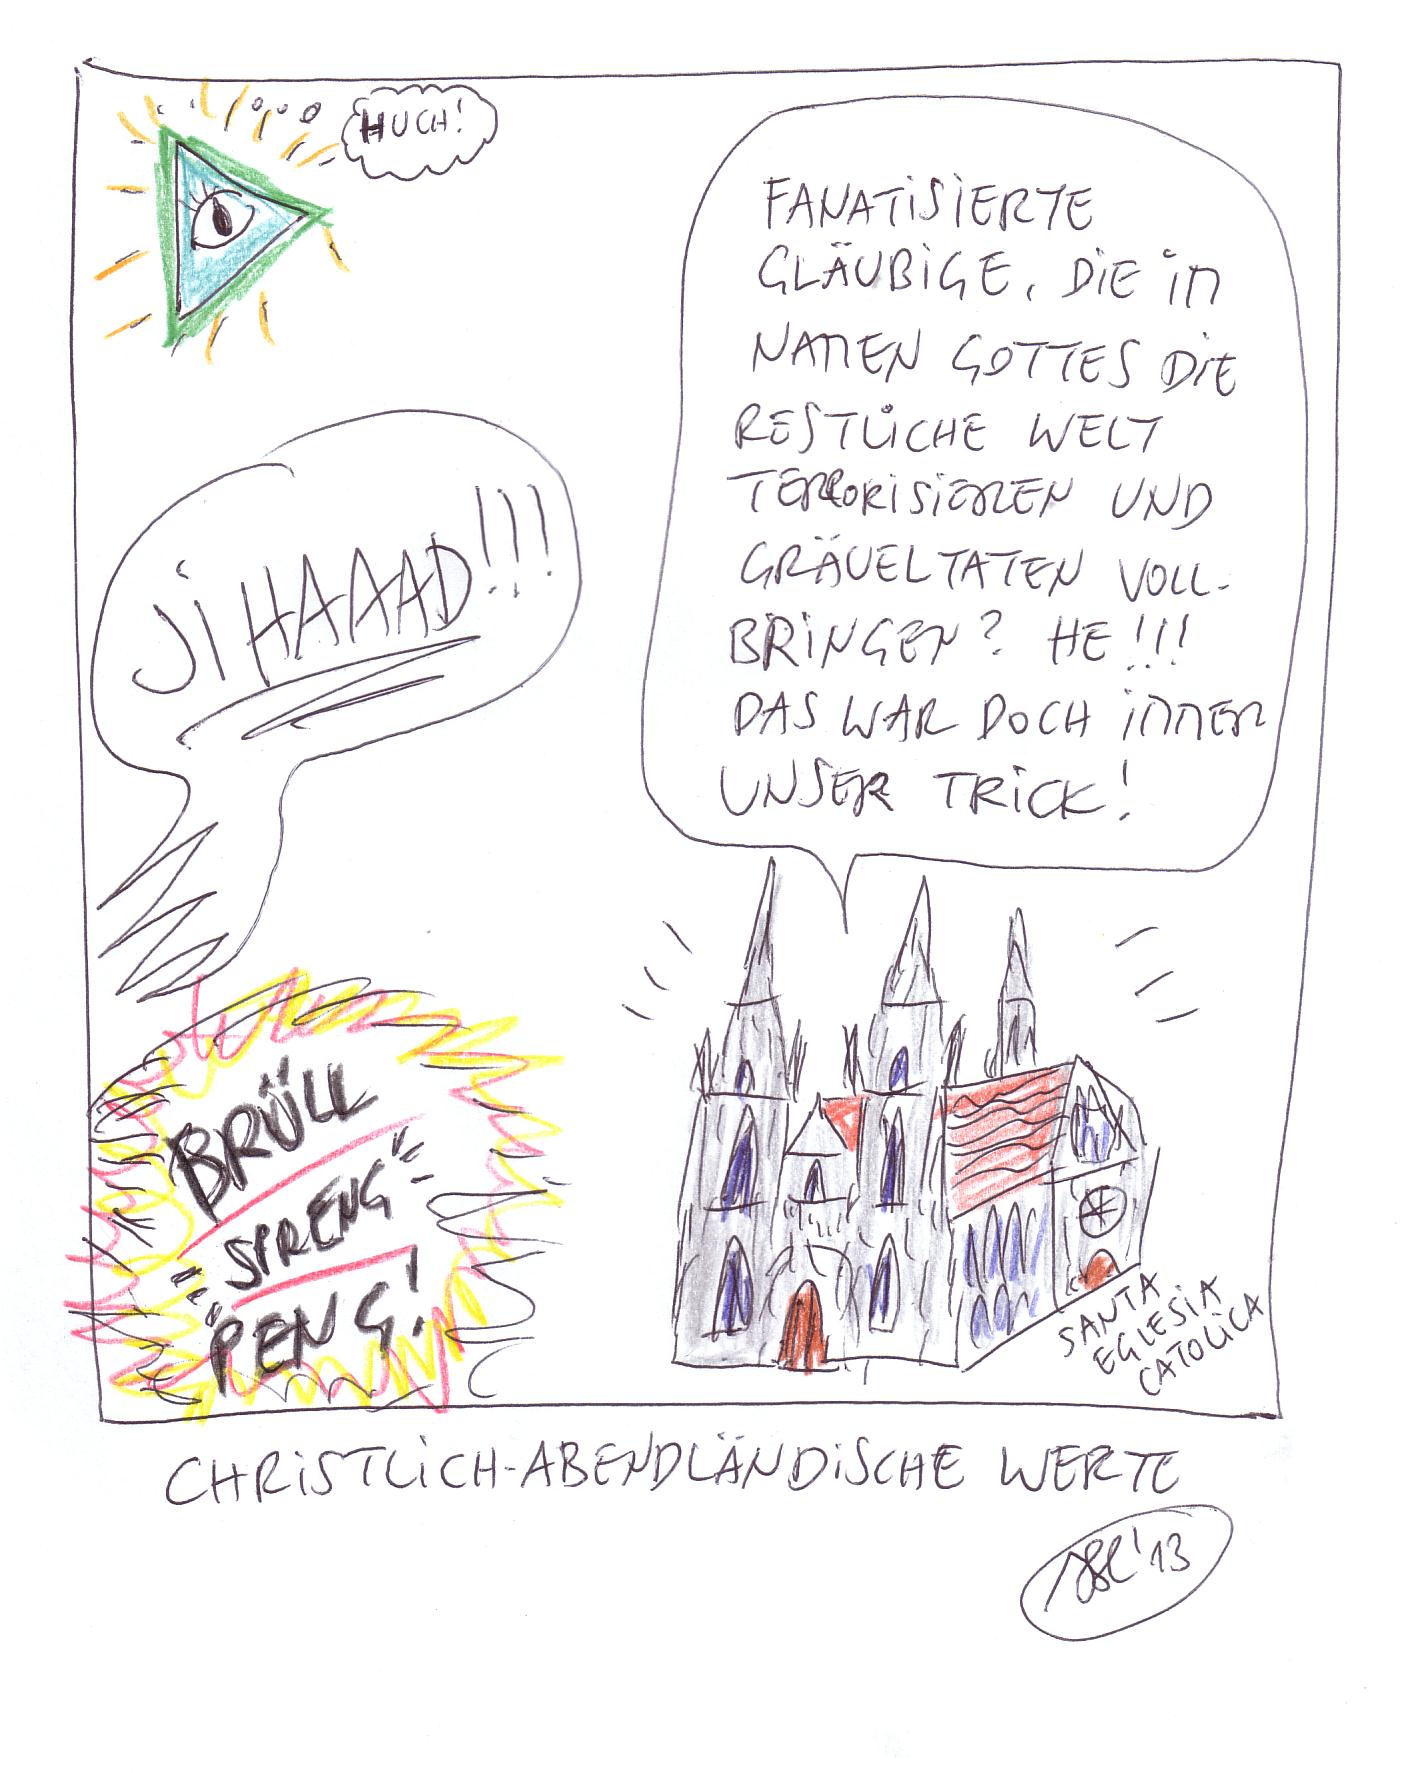 HUCH!
FANATISIERTE
GLÄUBIGE, DIE IM
NAMEN GOTTES DIE
RESTLICHE WELT
TERRORISIEREN UND
GRÄUELTATEN VOLL-
BRINGEN? HE!!!
DAS WAR DOCH IMMER
UNSER TRICK!
JIHAAAD!!!
BRÜLL
SPRENG
PENG!
SANTA
EGLESIA
CATOLICA
CHRISTLICH-ABENDLÄNDISCHE WERTE
'13